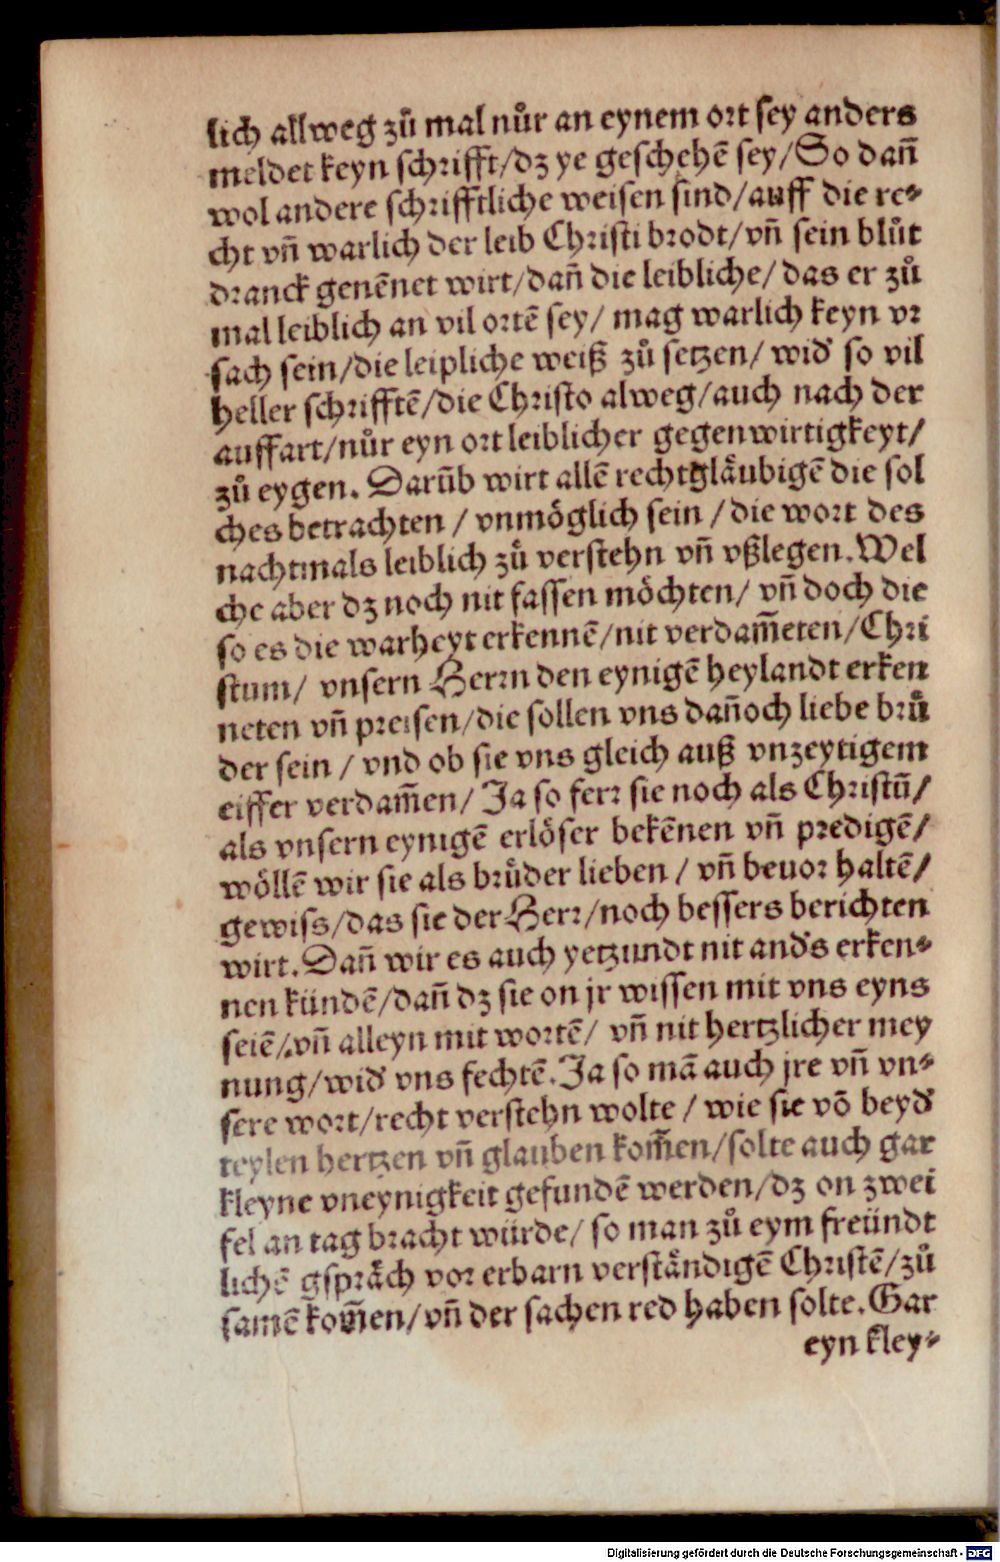 lich allweg zů mal nůr an eynem ort sey anders
meldet keyn schrifft/dz ye geschehē sey/So dañ
wol andere schrifftliche weisen sind/auff die re⸗
cht vñ warlich der leib Christi brodt/vñ sein blůt
dranck genēnet wirt/dañ die leibliche/das er zů
mal leiblich an vil ortē sey/ mag warlich keyn vr
sach sein/die leipliche weiß zů setzen/ wid' so vil
heller schrifftē/die Christo alweg/auch nach der
auffart/nůr eyn ort leiblicher gegenwirtigkeyt/
zů eygen. Darūb wirt allē rechtgläubigē die sol
ches betrachten / vnmöglich sein /die wort des
nachtmals leiblich zů verstehn vñ vßlegen.Wel
che aber dz noch nit fassen möchten/ vñ doch die
so es die warheyt erkennē/nit verdam̄eten/Chri
stum/ vnsern Herrn den eynigē heylandt erken
neten vñ preisen/die sollen vns dañoch liebe brů
der sein / vnd ob sie vns gleich auß vnzeytigem
eiffer verdam̄en/ Ja so ferr sie noch als Christū/
als vnsern eynigē erlöser bekēnen vñ predigē/
wöllē wir sie als brůder lieben / vñ beuor haltē/
gewiss/das sie der Herr/noch bessers berichten
wirt.Dañ wir es auch yetzundt nit and's erken⸗
nen kündē/dañ dz sie on jr wissen mit vns eyns
seiē/vñ alleyn mit wortē/ vñ nit hertzlicher mey
nung/wid' vns fechtē.Ja so mā auch jre vñ vn⸗
sere wort/recht verstehn wolte / wie sie vō beyd'
teylen hertzen vñ glauben kom̄en/solte auch gar
kleyne vneynigkeit gefundē werden/dz on zwei
fel an tag bracht würde/ so man zů eym freündt
lichē gspräch vor erbarn verständigē Christē/zů
samē kom̄en/vñ der sachen red haben solte.Gar
eyn kley⸗
Digitalisierung gefördert durch die Deutsche Forschungsgemeinschaft - DFG